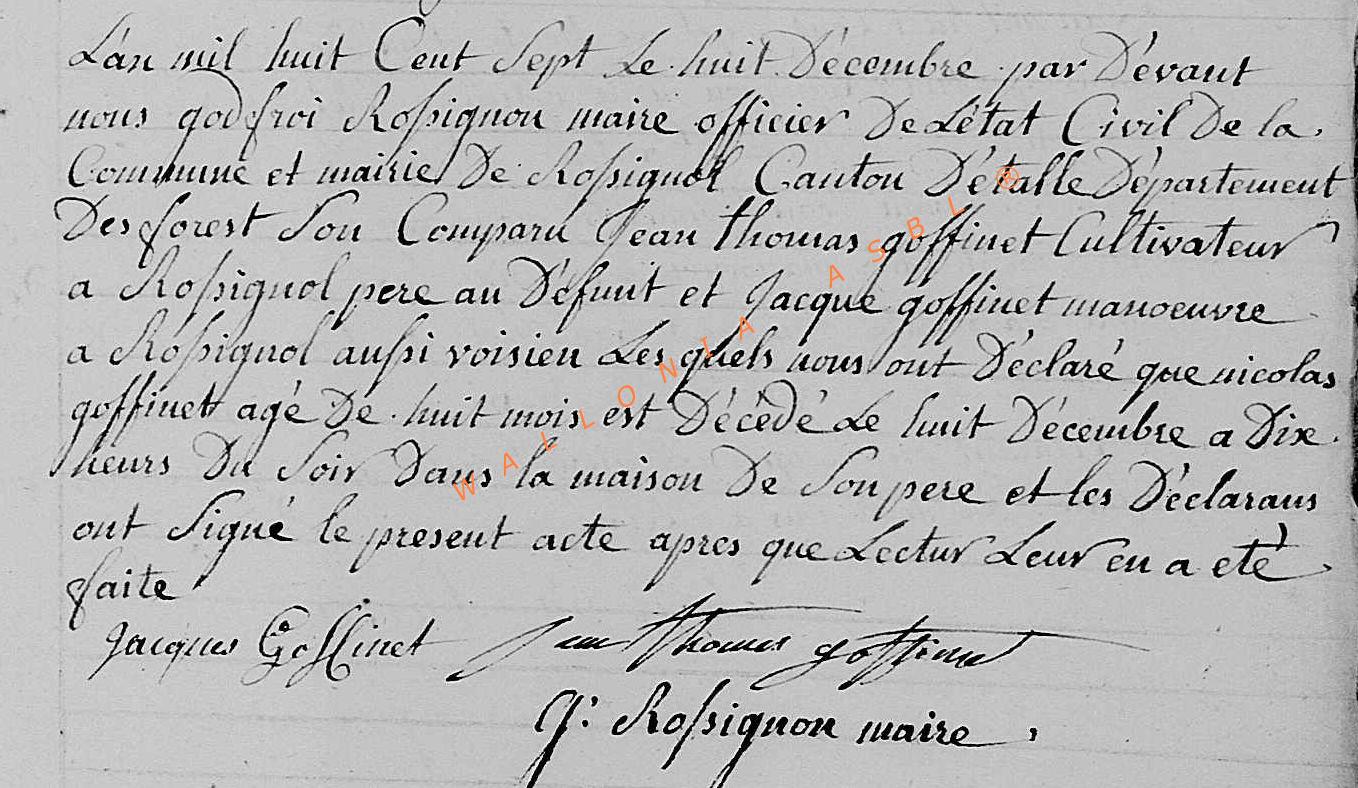 L'an mil huit Cent Sept Le huit Décembre par Dévant
nous godfroi Rossignon maire officier De L'état Civil De la
Commune et mairie De Rossignol Canton D'étalle Département
Des forest Son Comparu Jean thomas goffinet Cultivateur
a Rossignol pere au Défunt et Jacque goffinet manoeuvre
a Rossignol aussi voisien Les quels nous ont Déclaré que nicolas
goffinet agé De huit mois est Décédé Le huit Décembre a Dix
heurs Du Soir Dans la maison De Son pere et les Déclarans
ont Signé le present acte apres que Lectur Leur en a eté
faite
Jacques Goffinet Jean thomas goffinet
g: Rossignon maire
WALLONIA ASBL ®